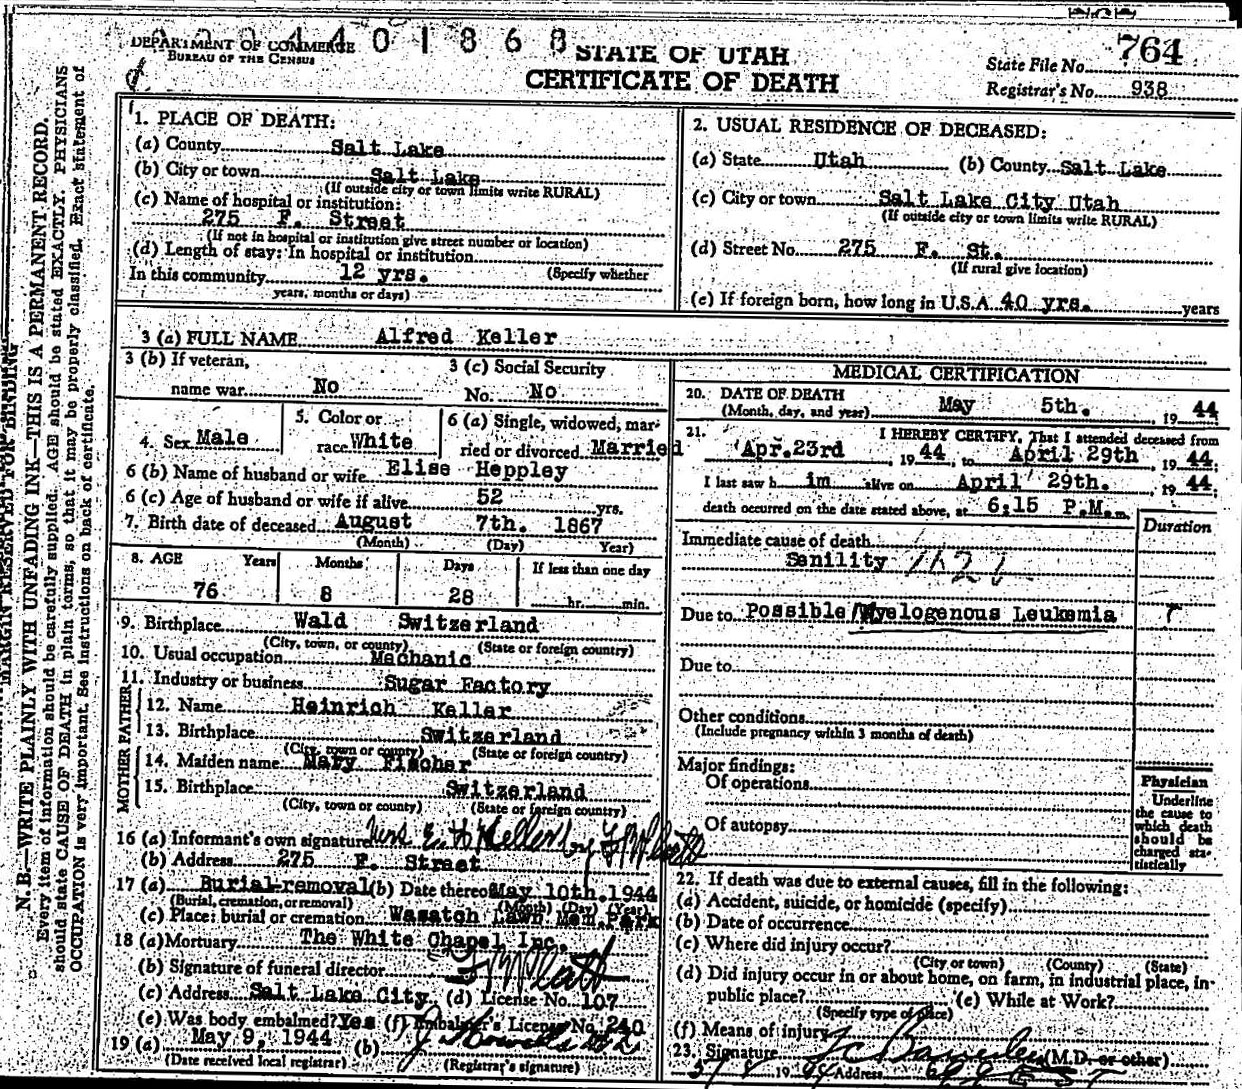 004401868
DEPARTMENT OF COMMERCE
BUREAU OF THE CENSUS
STATE OF UTAH
CERTIFICATE OF DEATH
State File No. 764
Registrar's No. 938
N. B.—WRITE PLAINLY WITH UNFADING INK—THIS IS A PERMANENT RECORD.
MARGIN RESERVED FOR BINDING
Every item of information should be carefully supplied. AGE should be stated EXACTLY. PHYSICIANS
should state CAUSE OF DEATH in plain terms, so that it may be properly classified. Exact statement of
OCCUPATION is very important. See instructions on back of certificate.
1. PLACE OF DEATH:
(a) County Salt Lake
(b) City or town Salt Lake
(If outside city or town limits write RURAL)
(c) Name of hospital or institution:
275 F. Street
(If not in hospital or institution give street number or location)
(d) Length of stay: In hospital or institution
In this community 12 yrs. (Specify whether
years, months or days)
2. USUAL RESIDENCE OF DECEASED:
(a) State Utah (b) County Salt Lake
(c) City or town Salt Lake City Utah
(If outside city or town limits write RURAL)
(d) Street No. 275 F. St.
(If rural give location)
(e) If foreign born, how long in U.S.A. 40 yrs. years
3 (a) FULL NAME Alfred Keller
3 (b) If veteran,
name war No
3 (c) Social Security
No. No
4. Sex Male
5. Color or
race White
6 (a) Single, widowed, mar-
ried or divorced Married
6 (b) Name of husband or wife Elise Heppley
6 (c) Age of husband or wife if alive 52 yrs.
7. Birth date of deceased August 7th. 1867
(Month) (Day) Year)
8. AGE Years Months Days If less than one day
76 8 28 hr. min.
9. Birthplace Wald Switzerland
(City, town, or county) (State or foreign country)
10. Usual occupation Mechanic
11. Industry or business Sugar Factory
FATHER
12. Name Heinrich Keller
13. Birthplace Switzerland
(City, town or county) (State or foreign country)
MOTHER
14. Maiden name Mary Fischer
15. Birthplace Switzerland
(City, town or county) (State or foreign country)
16 (a) Informant's own signature Mrs. E. H. Keller by
(b) Address 275 F. Street
17 (a) Burial-removal (b) Date thereof May 10th. 1944
(Burial, cremation, or removal) (Month) (Day) (Year)
(c) Place: burial or cremation Wasatch Lawn Mem. Park
18 (a) Mortuary The White Chapel Inc.
(b) Signature of funeral director
(c) Address Salt Lake City (d) License No. 107
(e) Was body embalmed? Yes (f) Embalmer's License No. 240
19 (a) May 9, 1944 (b)
(Date received local registrar) (Registrar's signature)
MEDICAL CERTIFICATION
20. DATE OF DEATH
(Month, day, and year) May 5th. 19 44
21. I HEREBY CERTIFY, That I attended deceased from
Apr. 23rd 19 44, to April 29th, 19 44;
I last saw h im alive on April 29th. , 19 44;
death occurred on the date stated above, at 6:15 P.M. m.
Duration
Immediate cause of death
Senility
Due to Possible Myelogenous Leukemia
Due to
Other conditions
(Include pregnancy within 3 months of death)
Major findings:
Of operations
Of autopsy
Physician
Underline
the cause to
which death
should be
charged sta-
tistically
22. If death was due to external causes, fill in the following:
(a) Accident, suicide, or homicide (specify)
(b) Date of occurrence
(c) Where did injury occur?
(City or town) (County) (State)
(d) Did injury occur in or about home, on farm, in industrial place, in
public place? (e) While at Work?
(Specify type of place)
(f) Means of injury
23. Signature (M.D. or other)
5/8 19 44 Address